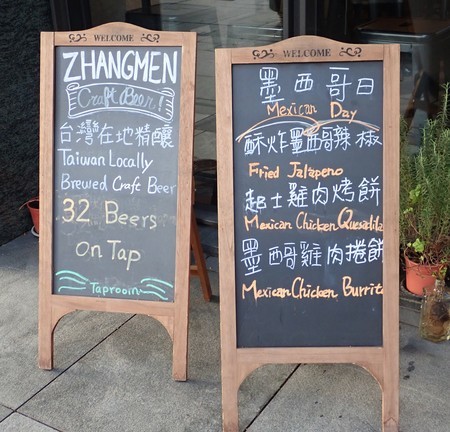 WELCOME
ZHANGMEN
Craft Beer!
台灣在地精釀
Taiwan Locally
Brewed Craft Beer
32 Beers
On Tap
Taproom
WELCOME
墨西哥日
Mexican Day
酥炸墨西哥辣椒
Fried Jalapeno
起士雞肉烤餅
Mexican Chicken Quesadilla
墨西哥雞肉捲餅
Mexican Chicken Burrito